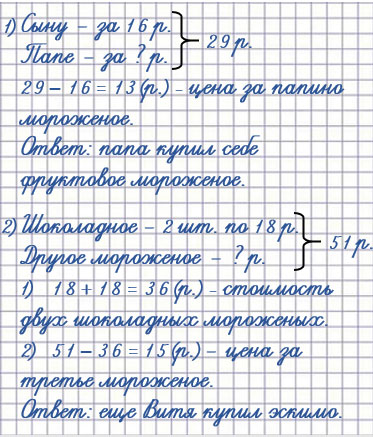 1) Сыну - за 16 р.
Папе - за ? р.
29 р.
29 - 16 = 13 (р.) - цена за папино
мороженое.
Ответ: папа купил себе
фруктовое мороженое.
2) Шоколадное - 2 шт. по 18 р.
Другое мороженое - ? р.
51 р.
1) 18 + 18 = 36 (р.) - стоимость
двух шоколадных мороженых.
2) 51 - 36 = 15 (р.) - цена за
третье мороженое.
Ответ: еще Витя купил эскимо.